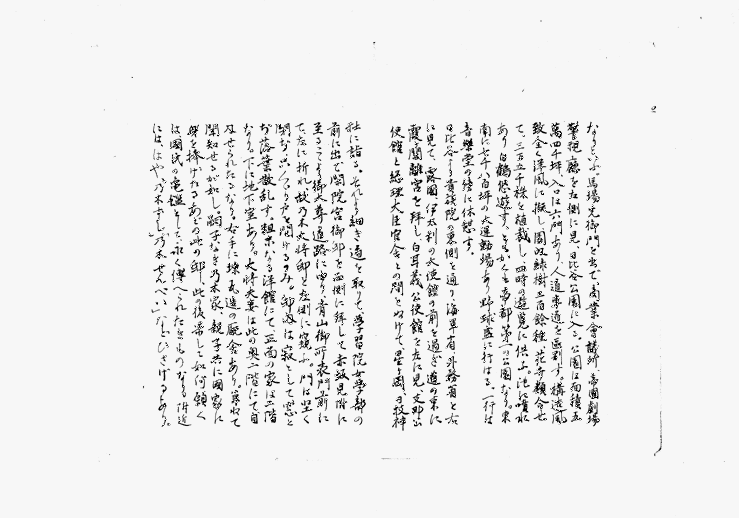 なりといふ。馬場先御門を出で、商業會議所、帝國劇場
警視廳を左側に見、日比谷公園に入る。公園は面積五
萬四千坪、入口は六門あり、人道車道を區劃す。構造風
致全く洋風に擬し園囿綠樹三百餘種、花卉類合せ
て、三百六千株を植栽し、四時の遊覧に供ふ。池に噴水
あり、白鶴悠遊す。ともかくも帝都第一の公園なり。東
南に七千八百坪の大運動場あり、野球盛に行はる。一行は
音樂堂の傍に休憩す。
日比谷より貴族院の東側を通り、海軍省、外務省と右
に見て、露國、伊太利の大使館の前を過ぎ、道の東に
霞ヶ關離宮を拜し、白耳義公使館を左に見、支那公
使館と總理大臣官舎との間をぬけて、星ヶ岡、日枝神
社に詣る。それより細き道を取って學習院女學部の
前に出で、閑院宮御邸を西側に拜して赤坂見附に
至る。ここより御大葬道路に由り青山御所表門前に
て、左に折れ、故乃木大將邸を左側に窺ふ。門は堅く
閉ぢ只くゞり戸を開けるのみ。邸内は寂として窓と
ぢ落葉散乱す。粗末なる洋館にて、正面の家は二階
なり。下に地下室あり。大將夫妻は此の奥二階にて自
刃せられたるなり。右手に煉瓦造の厩舎あり、寞れて
聞知せるが如し。嗣子なき乃木家、親子共に國家に
躰を捧げたるあとの此の邸、此の後果して如何、願く
は國民の亀鑑として、永く傳へられたきものなる。附近
にははや、「乃木ずし」「乃木せんべい」などひさげるあり。